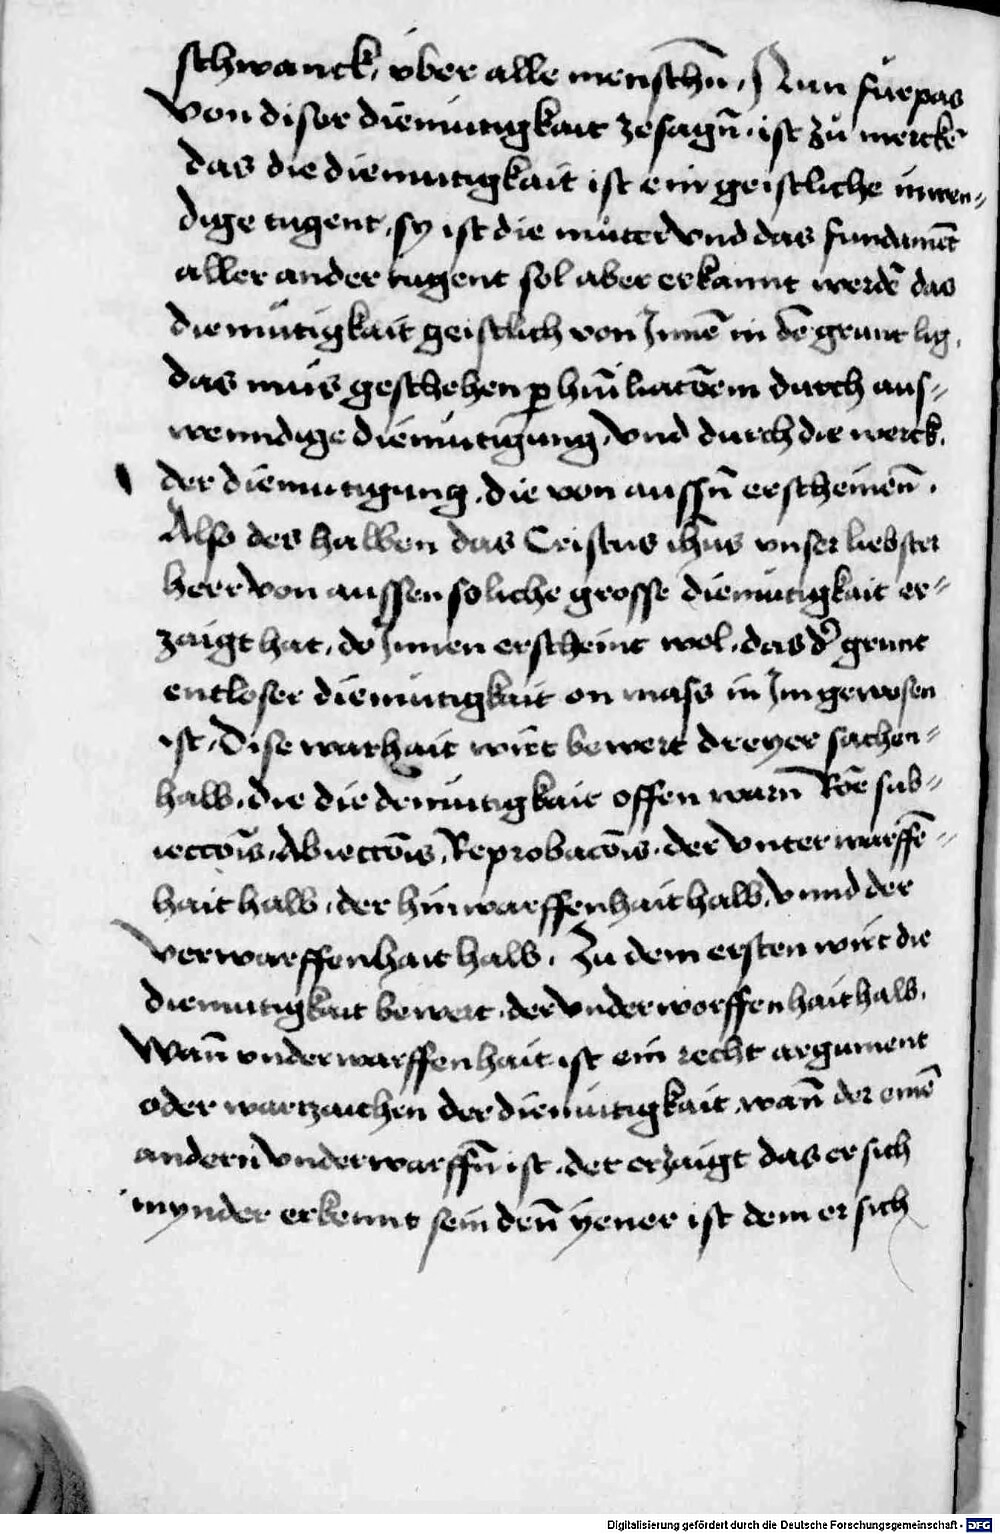 schwanck, vber alle menschn̄. Nun fürpas
von diser diemütigkait zesagn̄ . ist zů merckē
das die diemutigkait ist ein geistliche inwen-
dige tugent, sy ist die můter vnd das fundamēt
aller ander tugent sol aber erkannt werdē das
diemütigkait geistlich von Innē in dē grunt lig,
das müs geschehen ꝑ humiliacōem durch aus-
wenndige diemütigung, vnd durch die werck.
der diemutigung . die von aussn̄ erscheinēn .
Also des halben das Cristus ihūs vnser liebster
herr von aussen soliche grosse diemütigkait er-
zaigt hat, do Innen erscheint wol . das dʼ grunt
entloser diemütigkait on mass in Im gewesen
ist, Dise warhait wirt bewert dreyer sachen-
halb . die die demütigkait offen warn̄ Rōe sub-
ieccōis, Abieccōis, Reprobacōis . der vnterwarffē-
hait halb . der hinwarffenhait halb, vnnd der
verwarffenhait halb . Zu dem ersten wirt die
diemutigkait bewert . der vnderworffenhait halb.
Wan̄ vnderwarffenhait ist ein recht argument
oder wartzaichen der diemütigkait . wan̄ der einē
andern vnderwarffn̄ ist . der erzaigt das er sich
mynder erkennt sein den̄ yener ist dem er sich
Digitalisierung gefördert durch die Deutsche Forschungsgemeinschaft - DFG